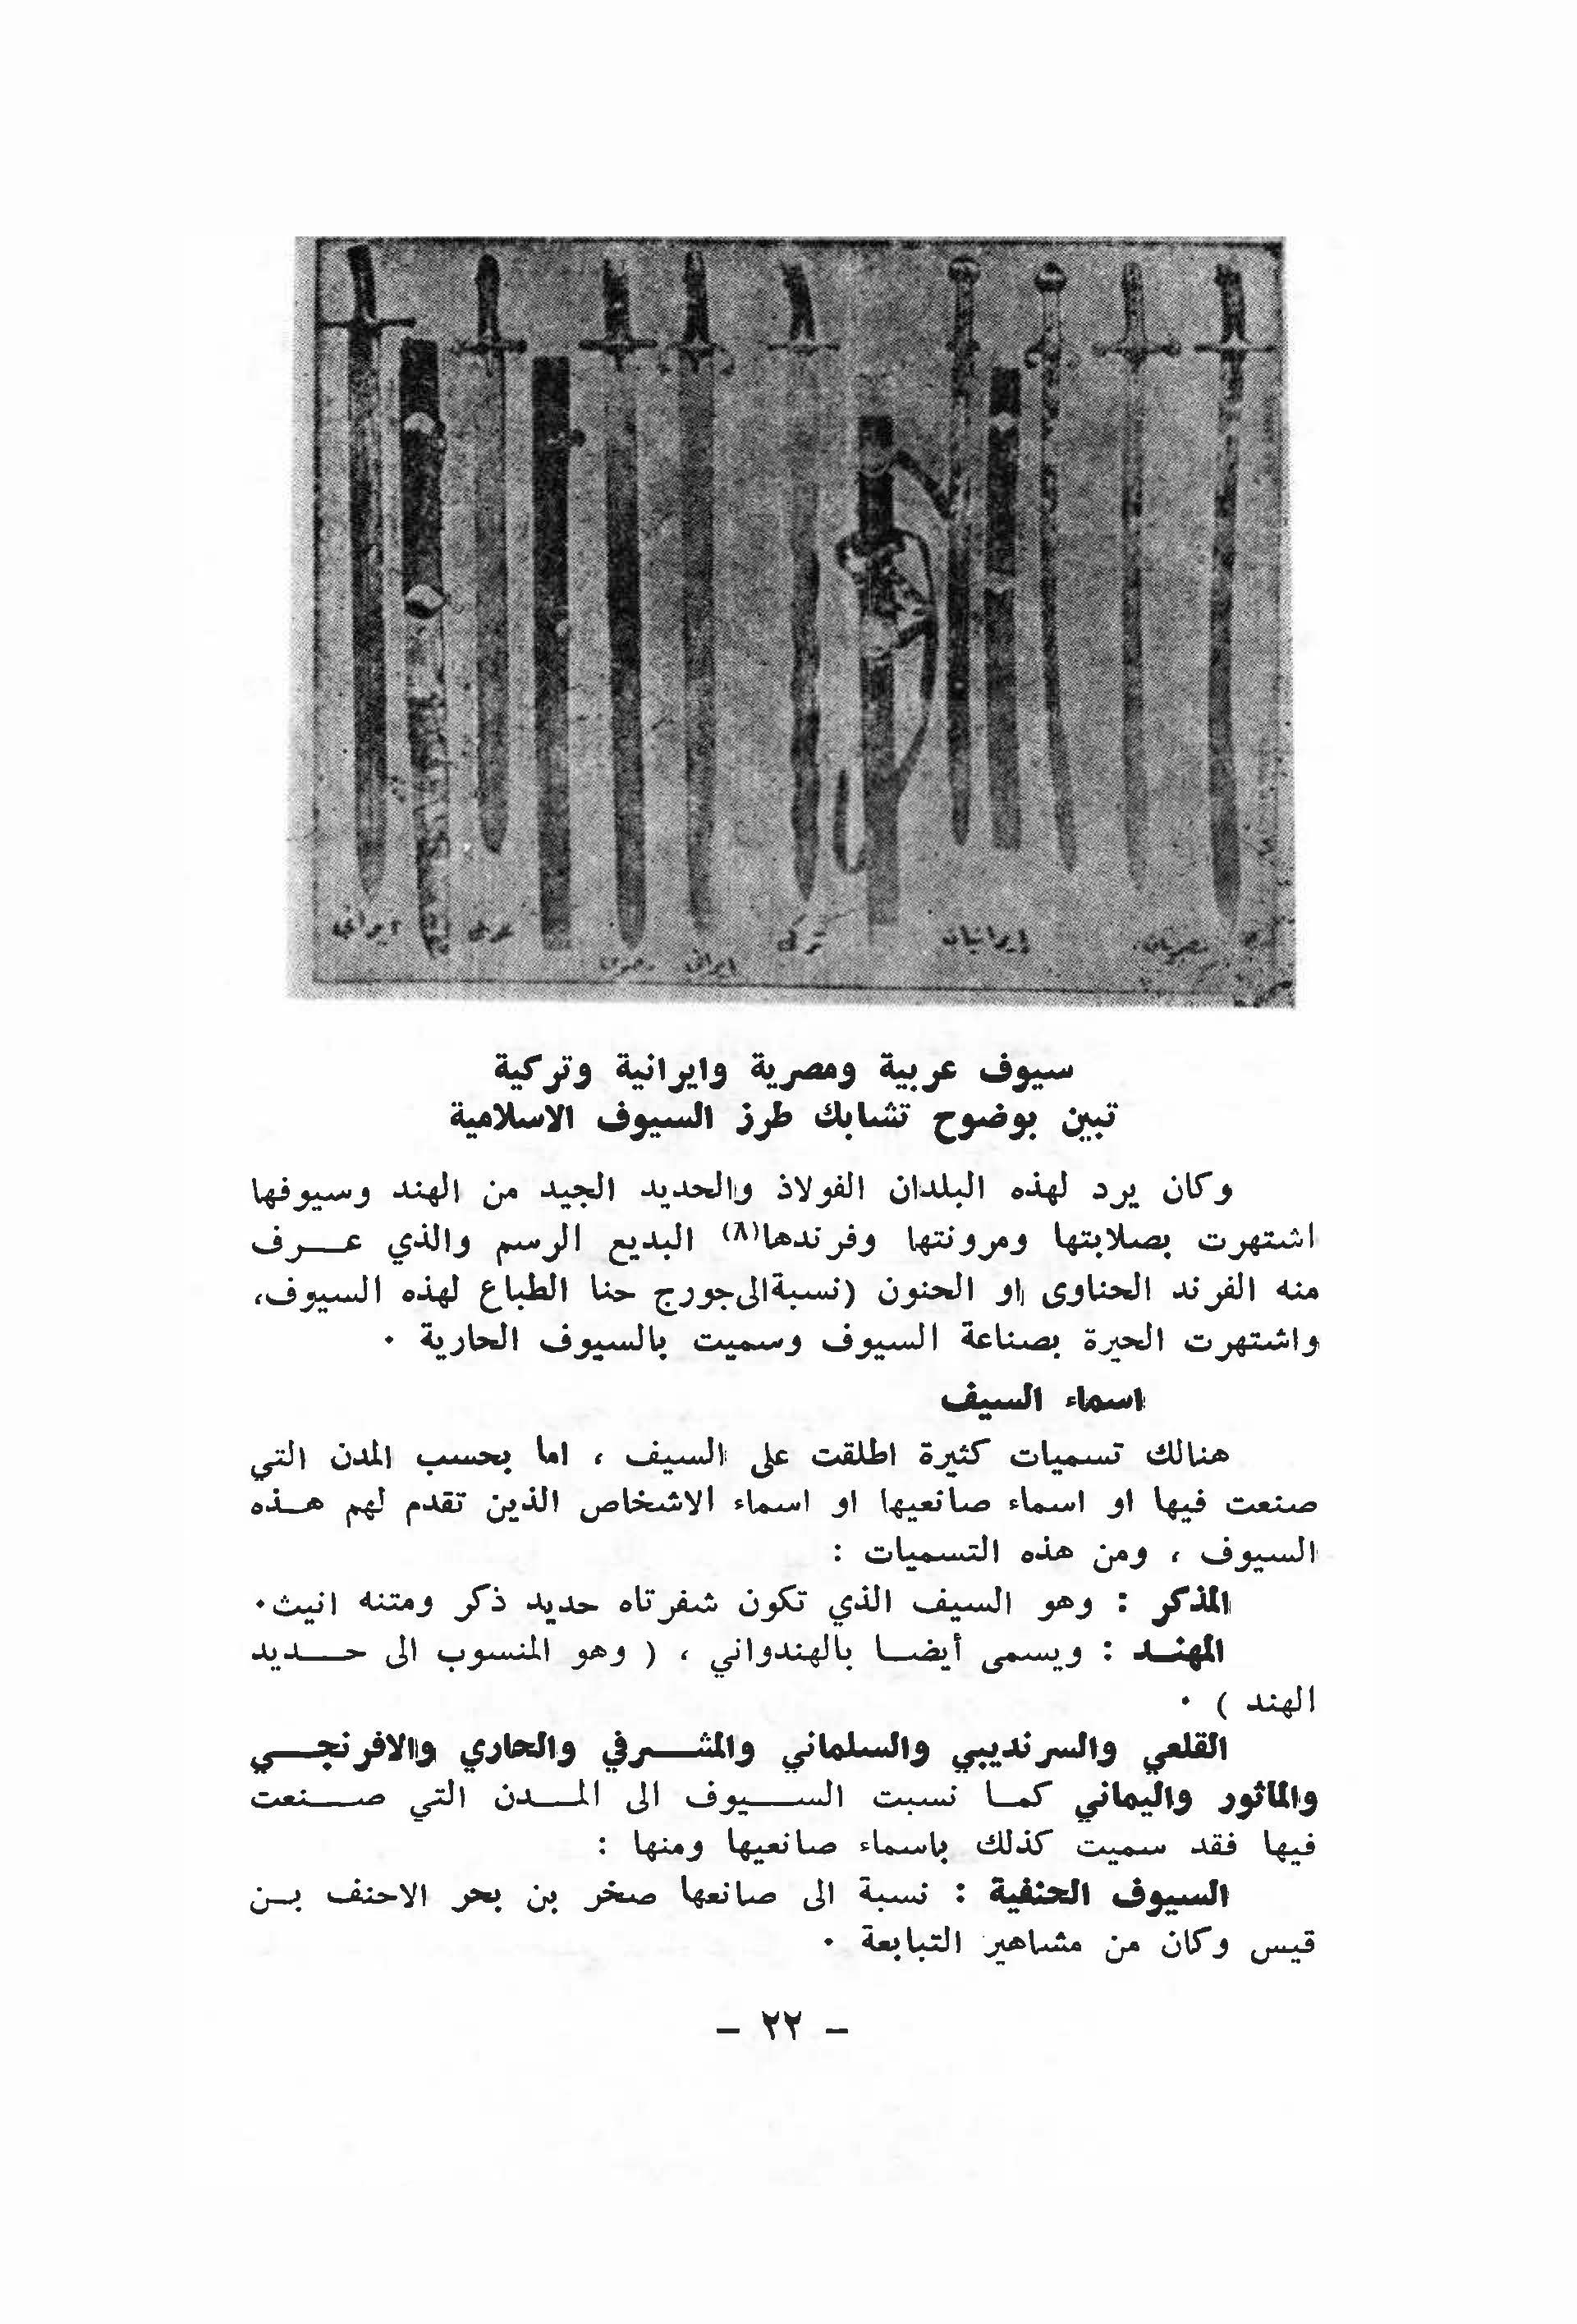 ايراني
عربي
ايراني
تركي
إيرانيان
مصريان
سيوف عربية ومصرية وايرانية وتركية
تبين بوضوح تشابك طرز السيوف الاسلامية
وكان يرد لهذه البلدان الفولاذ والحديد الجيد من الهند وسيوفها
اشتهرت بصلابتها ومرونتها وفرندها(٨) البديع الرسم والذي عـــرف
منه الفرند الحناوى او الحنون (نسبةالىجورج حنا الطباع لهذه السيوف،
واشتهرت الحيرة بصناعة السيوف وسميت بالسيوف الحارية ٠
اسماء السيف
هنالك تسميات كثيرة اطلقت على السيف ، اما بحسب المدن التي
صنعت فيها او اسماء صانعيها او اسماء الاشخاص الذين تقدم لهم هـذه
السيوف ، ومن هذه التسميات :
المذكر : وهو السيف الذي تكون شفرتاه حديد ذكر ومتنه انيث٠
المهنـد : ويسمى أيضـا بالهندواني ، ( وهو المنسوب الى حـــديد
الهند ) ٠
القلعي والسرنديبي والسلماني والمشـــرفي والحاري والافرنجـــي
والمأثور واليماني كمـا نسبت الســـيوف الى المـــدن التي صـــنعت
فيها فقد سميت كذلك باسماء صانعيها ومنها :
السيوف الحنفية : نسبة الى صانعها صخر بن بحر الاحنف بـن
قيس وكان من مشاهير التبابعة ٠
– ٢٢ –